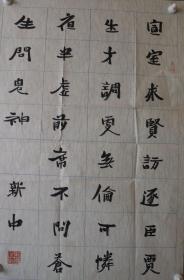 宣室求賢訪逐臣賈
生才調更無倫可憐
夜半虚前席不問蒼
生問鬼神 新中